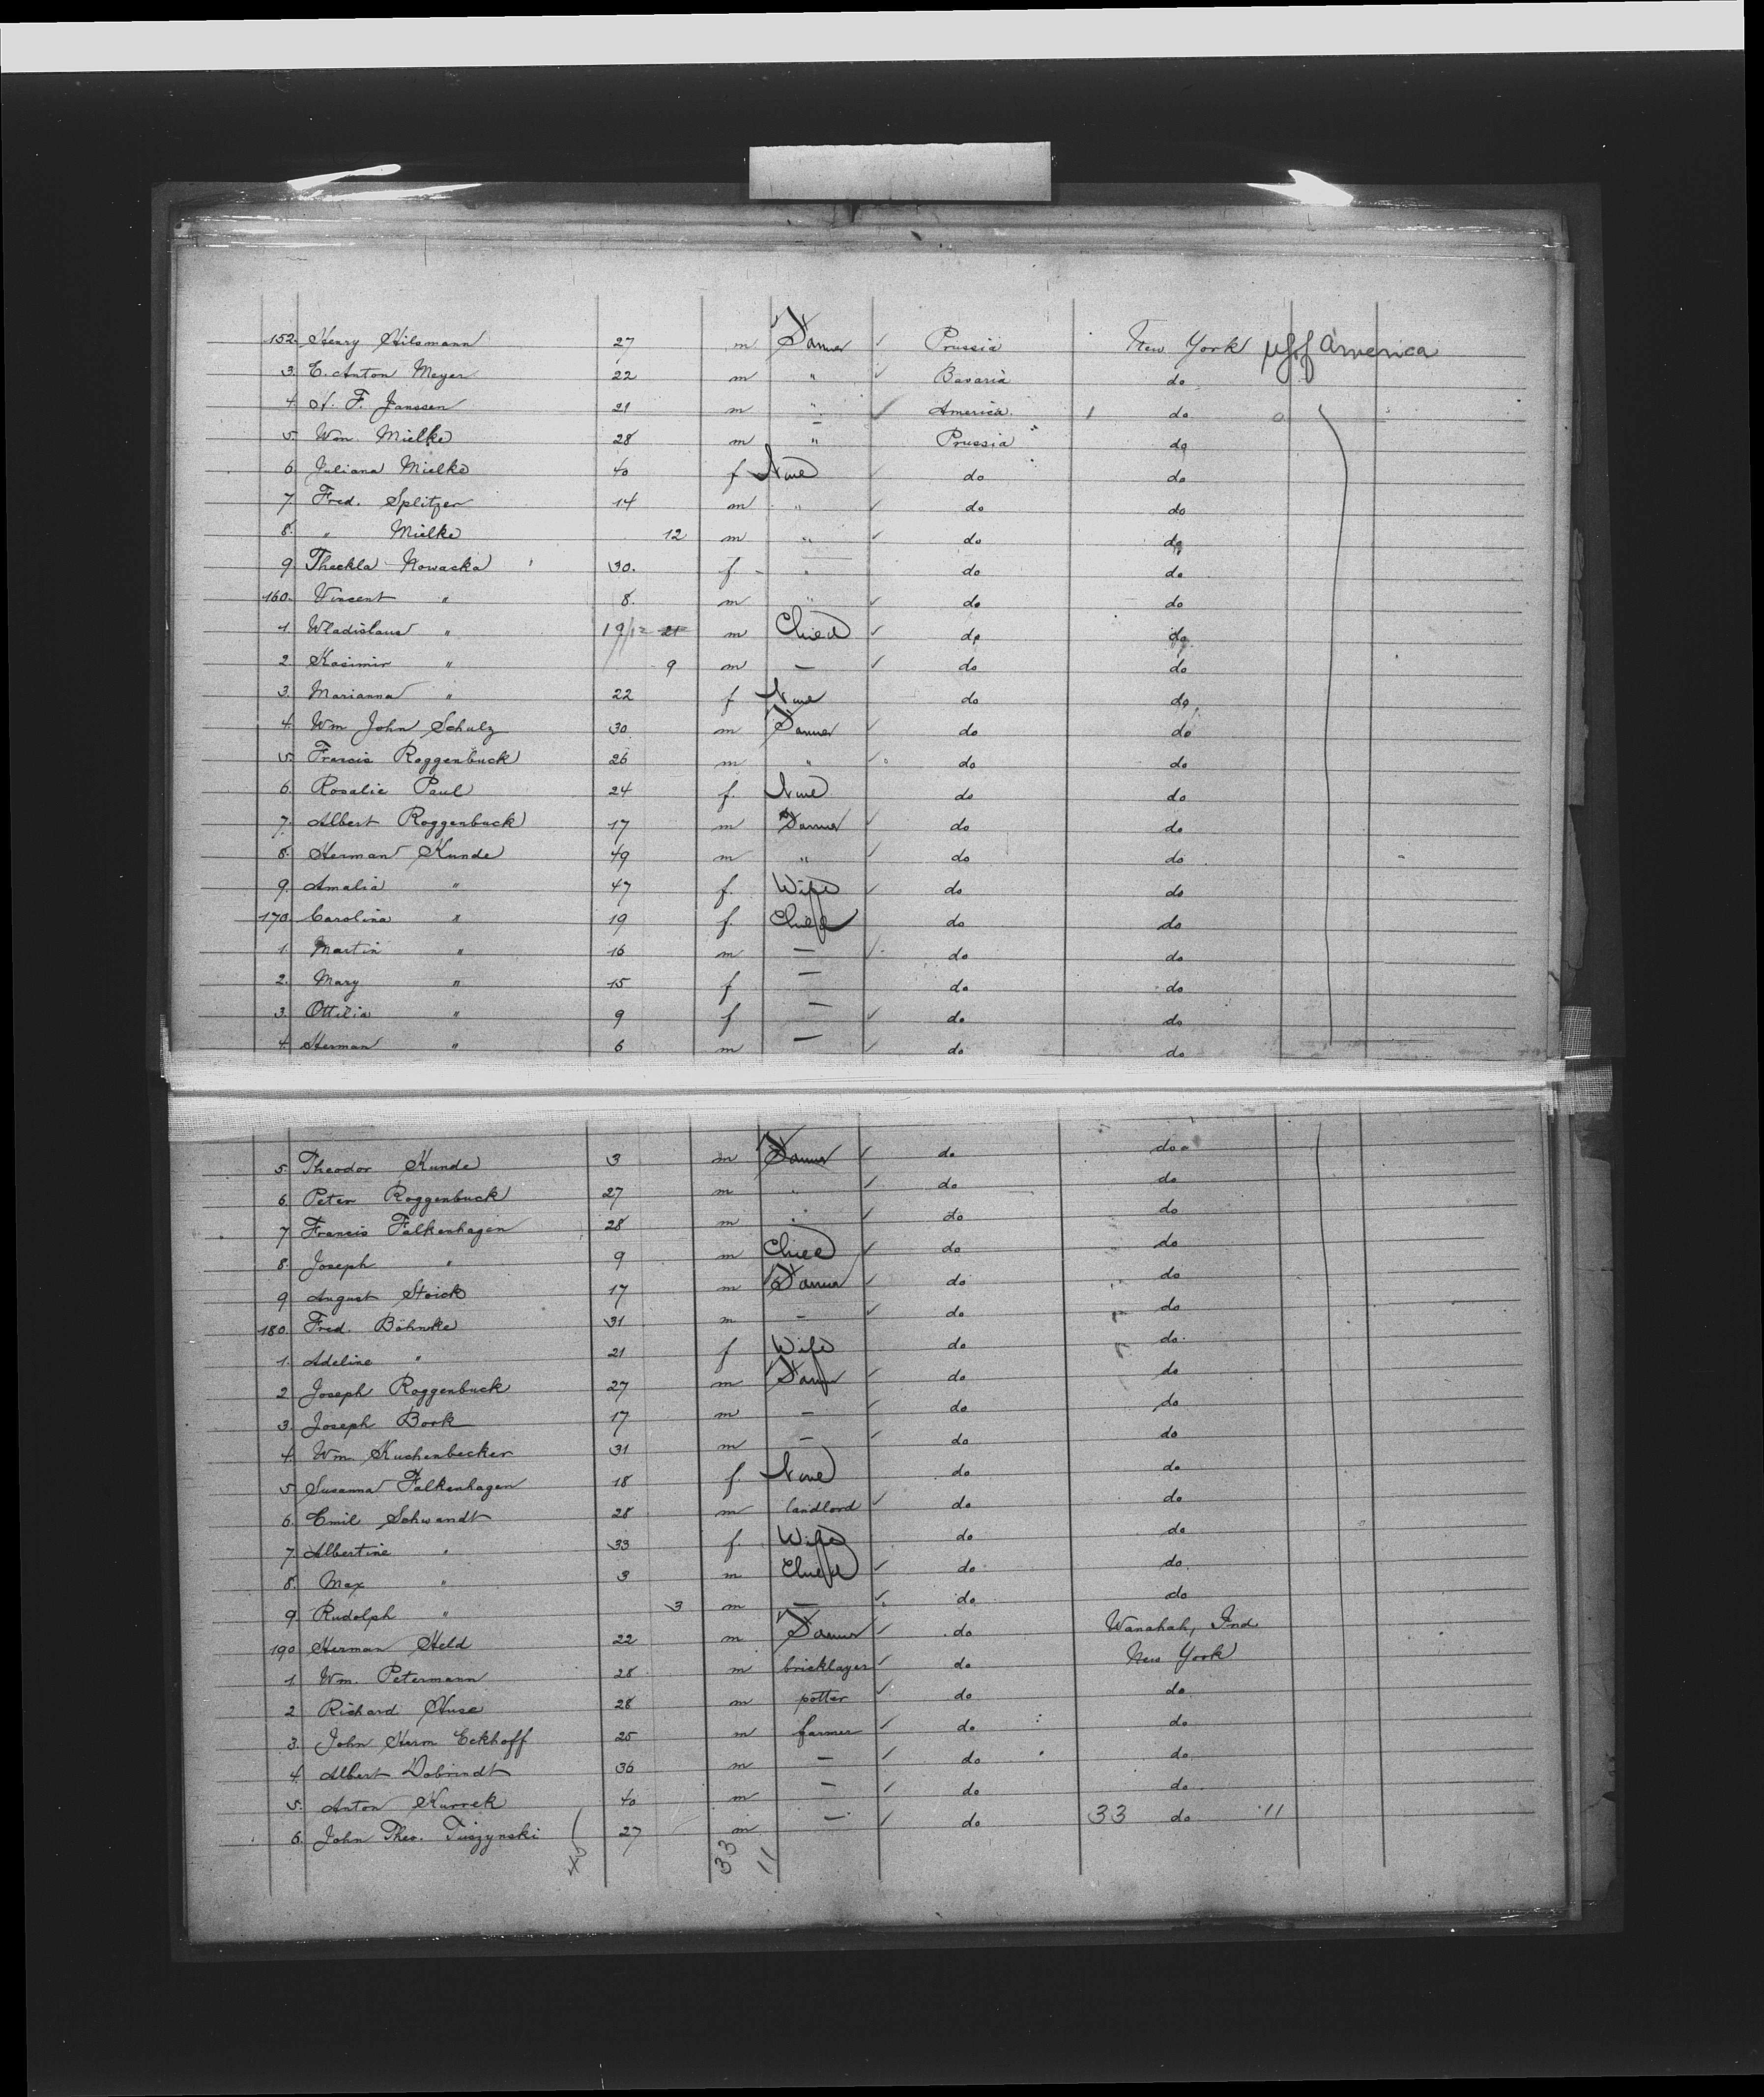 152. Henry Hilsmann 27 m Farmer ✓ Prussia New York US of America
3. E. Anton Meyer 22 m " ✓ Bavaria do
4. N. F. Janssen 21 m " ✓ America 1 do 0
5. Wm. Mielke 28 m " Prussia do
6. Juliana Mielke 40 f None do do
7. Fred. Splitzer 14 m " ✓ do do
8. " Mielke 12 m " ✓ do do
9 Theckla Nowacka 30. f " do do
160. Vincent " 8. m " ✓ do do
1. Wladislaus " 1 9/12 21 m Child ✓ do do
2. Kasimir " 9 m — ✓ do do
3. Marianna " 22 f None do do
4. Wm John Schulz 30 m Farmer ✓ do do
5. Francis Roggenbuck 26 m " ✓ do do
6. Rosalie Paul 24 f. None do do
7. Albert Roggenbuck 17 m Farmer ✓ do do
8. Herman Kunde 49 m " ✓ do do
9. Amalia " 47 f. Wife ✓ do do
170. Carolina " 19 f. Child do do
1. Martin " 16 m — ✓ do do
2. Mary " 15 f — do do
3. Ottilia " 9 f — ✓ do do
4. Herman " 6 m — ✓ do do
5. Theodor Kunde 3 m Farmer ✓ do do
6. Peter Roggenbuck 27 m " ✓ do do
7 Francis Falkenhagen 28 m " ✓ do do
8. Joseph " 9 m Child ✓ do do
9 August Stoick 17 m Farmer ✓ do do
180. Fred. Böhnke 31 m — ✓ do do
1. Adeline " 21 f Wife do do
2 Joseph Roggenbuck 27 m Farmer ✓ do do
3. Joseph Bork 17 m — ✓ do do
4. Wm. Kuchenbecker 31 m — ✓ do do
5 Susanna Falkenhagen 18 f. None do do
6. Emil Schwandt 28 m landlord ✓ do do
7. Albertine " 33 f. Wife do do
8. Max " 3 m Child ✓ do do
9. Rudolph " 3 m — ✓ do do
190 Herman Held 22 m Farmer ✓ do Wanahah, Ind
1. Wm. Petermann 28 m bricklayer ✓ do New York
2 Richard Huse 28 m potter ✓ do do
3. John Herm Eckhoff 25 m farmer ✓ do do
4. Albert Dobrindt 36 m — ✓ do do
5. Anton Kurrek 40 m — ✓ do do
6. John Theo. Tuszynski 27 m — ✓ do 33 do 11
45 33 11